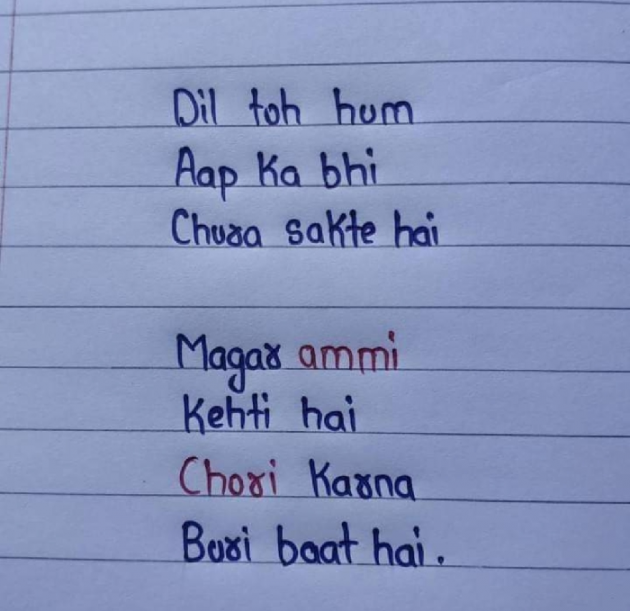 Dil toh hum
Aap Ka bhi
Chura sakte hai
Magar ammi
Kehti hai
Chori Karna
Buri baat hai.